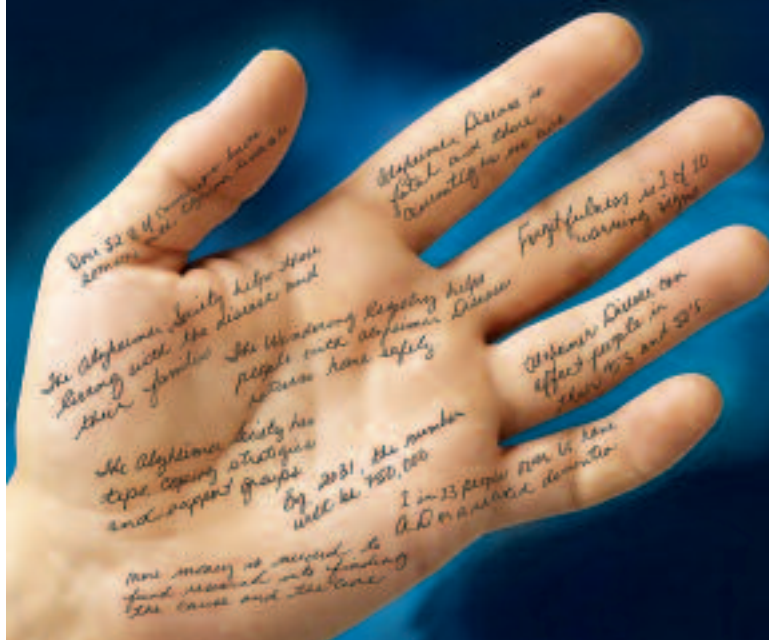 Alzheimer Disease is
fatal and there
currently is no cure
Forgetfulness is 1 of 10
warning signs
Over 328
some
The Alzheimer Society helps those
living with the disease and
their families
The Wandering Registry helps
people with Alzheimer Disease
return home safely
Alzheimer Disease can
affect people in
their 40's and 50's
The Alzheimer Society has
tips, coping strategies
and support groups
By 2031, the number
will be 750,000
1 in 13 people over 65 have
A.D or a related dementia
More money is needed to
fund research into finding
the cause and the cure